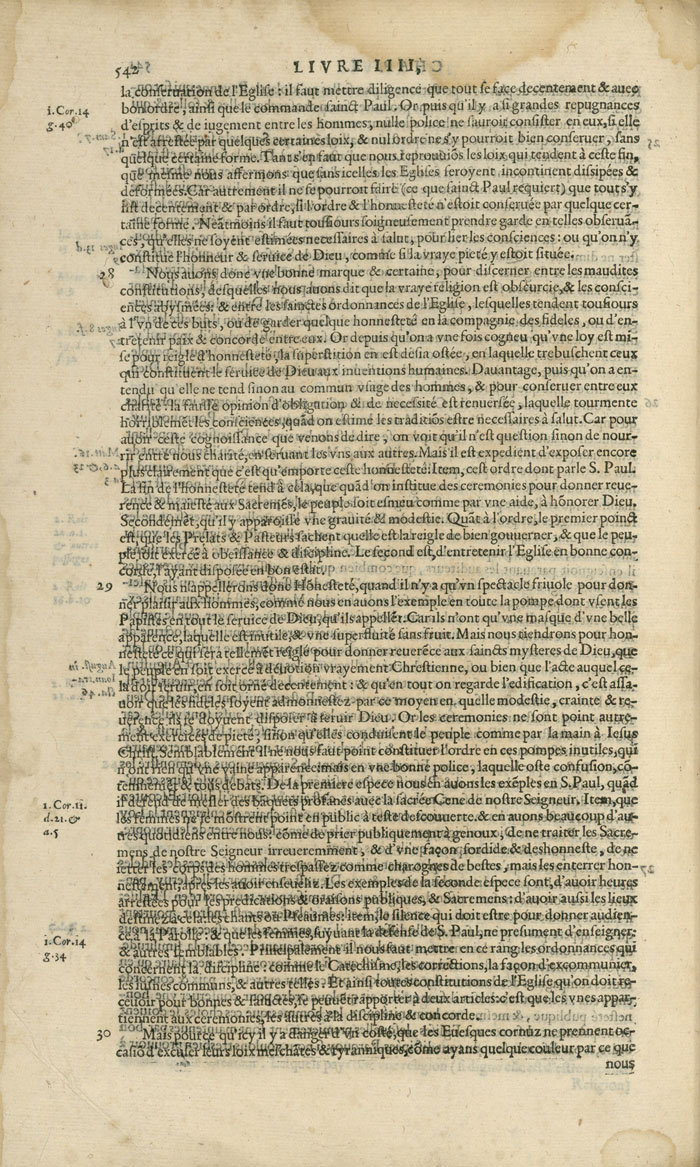 542
LIVRE IIII,
la conseruation de l'Eglise : il faut mettre diligence que tout se face decentement & auec
bon ordre, ainsi que le commande sainct Paul. Or puis qu'il y a si grandes repugnances
i. Cor. 14
g. 40
d'esprits & de iugement entre les hommes, nulle police ne sauroit consister en eux, si elle
n'est arrestée par quelques certaines loix, & nul ordre ne s'y pourroit bien conseruer, sans
quelque certaine forme. Tant s'en faut que nous reprouuiõs les loix qui tendent à ceste fin,
que mesme nous affermons que sans icelles les Eglises seroyent incontinent dissipées &
deformées. Car autrement il ne se pourroit faire (ce que sainct Paul requiert) que tout s'y
fist decentement & par ordre, si l'ordre & l'honnesteté n'estoit conseruée par quelque cer-
taine forme. Neãtmoins il faut tousiours soigneusement prendre garde en telles obseruã-
ces, qu'elles ne soyent estimées necessaires à salut, pour lier les consciences : ou qu'on n'y
constitue l'honneur & seruice de Dieu, comme si la vraye pieté y estoit située.
28
Nous auons donc vne bonne marque & certaine, pour discerner entre les maudites
constitutions, desquelles nous auons dit que la vraye religion est obscurcie, & les consci-
ences abysmées: & entre les sainctes ordonnances de l'Eglise, lesquelles tendent tousiours
à l'vn de ces buts, ou de garder quelque honnesteté en la compagnie des fideles, ou d'en-
tretenir paix & concorde entre eux. Or depuis qu'on a vne fois cogneu qu'vne loy est mi-
se pour reigle d'honnesteté, la superstition en est desia ostée, en laquelle trebuschent ceux
qui constituent le seruice de Dieu aux inuentions humaines. Dauantage, puis qu'on a en-
tendu qu'elle ne tend sinon au commun vsage des hommes, & pour conseruer entre eux
charité: la fausse opinion d'obligation & de necessité est renuersée, laquelle tourmente
horriblemẽt les consciences, quãd on estime les traditiõs estre necessaires à salut. Car pour
auoir ceste cognoissance que venons de dire, on voit qu'il n'est question sinon de nour-
rir entre nous charité, en seruant les vns aux autres. Mais il est expedient d'exposer encore
plus clairement que c'est qu'emporte ceste honnesteté: Item, cest ordre dont parle S. Paul.
La fin de l'honnesteté tend à cela, que quãd on institue des ceremonies pour donner reue-
rence & maiesté aux Sacremẽs, le peuple soit esmeu comme par vne aide, à honorer Dieu.
Secondemẽt, qu'il y apparoisse vne grauité & modestie. Quãt à l'ordre, le premier poinct
est, que les Prelats & Pasteurs sachent quelle est la reigle de bien gouuerner, & que le peu-
ple soit exercé à obeissance & discipline. Le second est, d'entretenir l'Eglise en bonne con-
corde, ayant disposée en bon estat.
29
Nous n'appellerons donc Honesteté, quand il n'y a qu'vn spectacle friuole pour don-
ner plaisir aux hommes, comme nous en auons l'exemple en toute la pompe dont vsent les
Papistes en tout le seruice de Dieu, qu'ils appellẽt. Car ils n'ont qu'vne masque d'vne belle
apparence, laquelle est inutile, & vne superfluité sans fruit. Mais nous tiendrons pour hon-
nesteté ce qui sera tellement reiglé pour donner reuerẽce aux saincts mysteres de Dieu, que
le peuple en soit exercé à deuotion vrayement Chrestienne, ou bien que l'acte auquel ce-
la doit seruir, en soit orné decentement : & qu'en tout on regarde l'edification, c'est assa-
uoir que les fideles soyent admonnestez par ce moyen en quelle modestie, crainte & re-
uerence ils se doyuent disposer à seruir Dieu. Or les ceremonies ne sont point autre-
ment exercices de pieté, sinon qu'elles conduisent le peuple comme par la main à Iesus
Christ. Semblablement il ne nous faut point constituer l'ordre en ces pompes inutiles, qui
n'ont rien qu'vne vaine apparence: mais en vne bonne police, laquelle oste confusion, cõ-
tennemẽt & tous debats. De la premiere espece nous en auons les exẽples en S. Paul, quãd
1. Cor. 11.
d. 21. &
a. 5
il defend de mesler des bãquets profanes auec la sacrée Cene de nostre Seigneur. Item, que
les femmes ne se monstrent point en public à teste descouuerte. & en auons beaucoup d'au-
tres quotidiens entre nous: cõme de prier publiquement à genoux, de ne traiter les Sacre-
mens de nostre Seigneur irreueremment, & d'vne façon sordide & deshonneste, de ne
ietter les corps des hommes trespassez comme charognes de bestes, mais les enterrer hon-
nestement, apres les auoir enseuelis. Les exemples de la seconde espece sont, d'auoir heures
arrestées pour les predications & oraisons publiques, & Sacremens : d'auoir aussi les lieux
destinez à cela: les chants ou Pseaumes: item, le silence qui doit estre pour donner audien-
1. Cor. 14
g. 34
ce à la Parole: & que les femmes, suyuant la defense de S. Paul, ne presument d'enseigner:
& autres semblables. Principalement il nous faut mettre en ce rang les ordonnances qui
concernent la discipline: comme le Catechisme, les corrections, la façon d'excommunier,
les iusnes communs, & autres telles. Et ainsi toutes constitutions de l'Eglise qu'on doit re-
ceuoir pour bonnes & sainctes, se peuuent rapporter à deux articles: c'est que les vnes appar-
tiennent aux ceremonies, les autres à la discipline & concorde.
30
Mais pource qu'icy il y a danger d'vn costé, que les Euesques cornuz ne prennent oc-
casiõ d'excuser leurs loix meschãtes & tyranniques, cõme ayans quelque couleur par ce que
nous